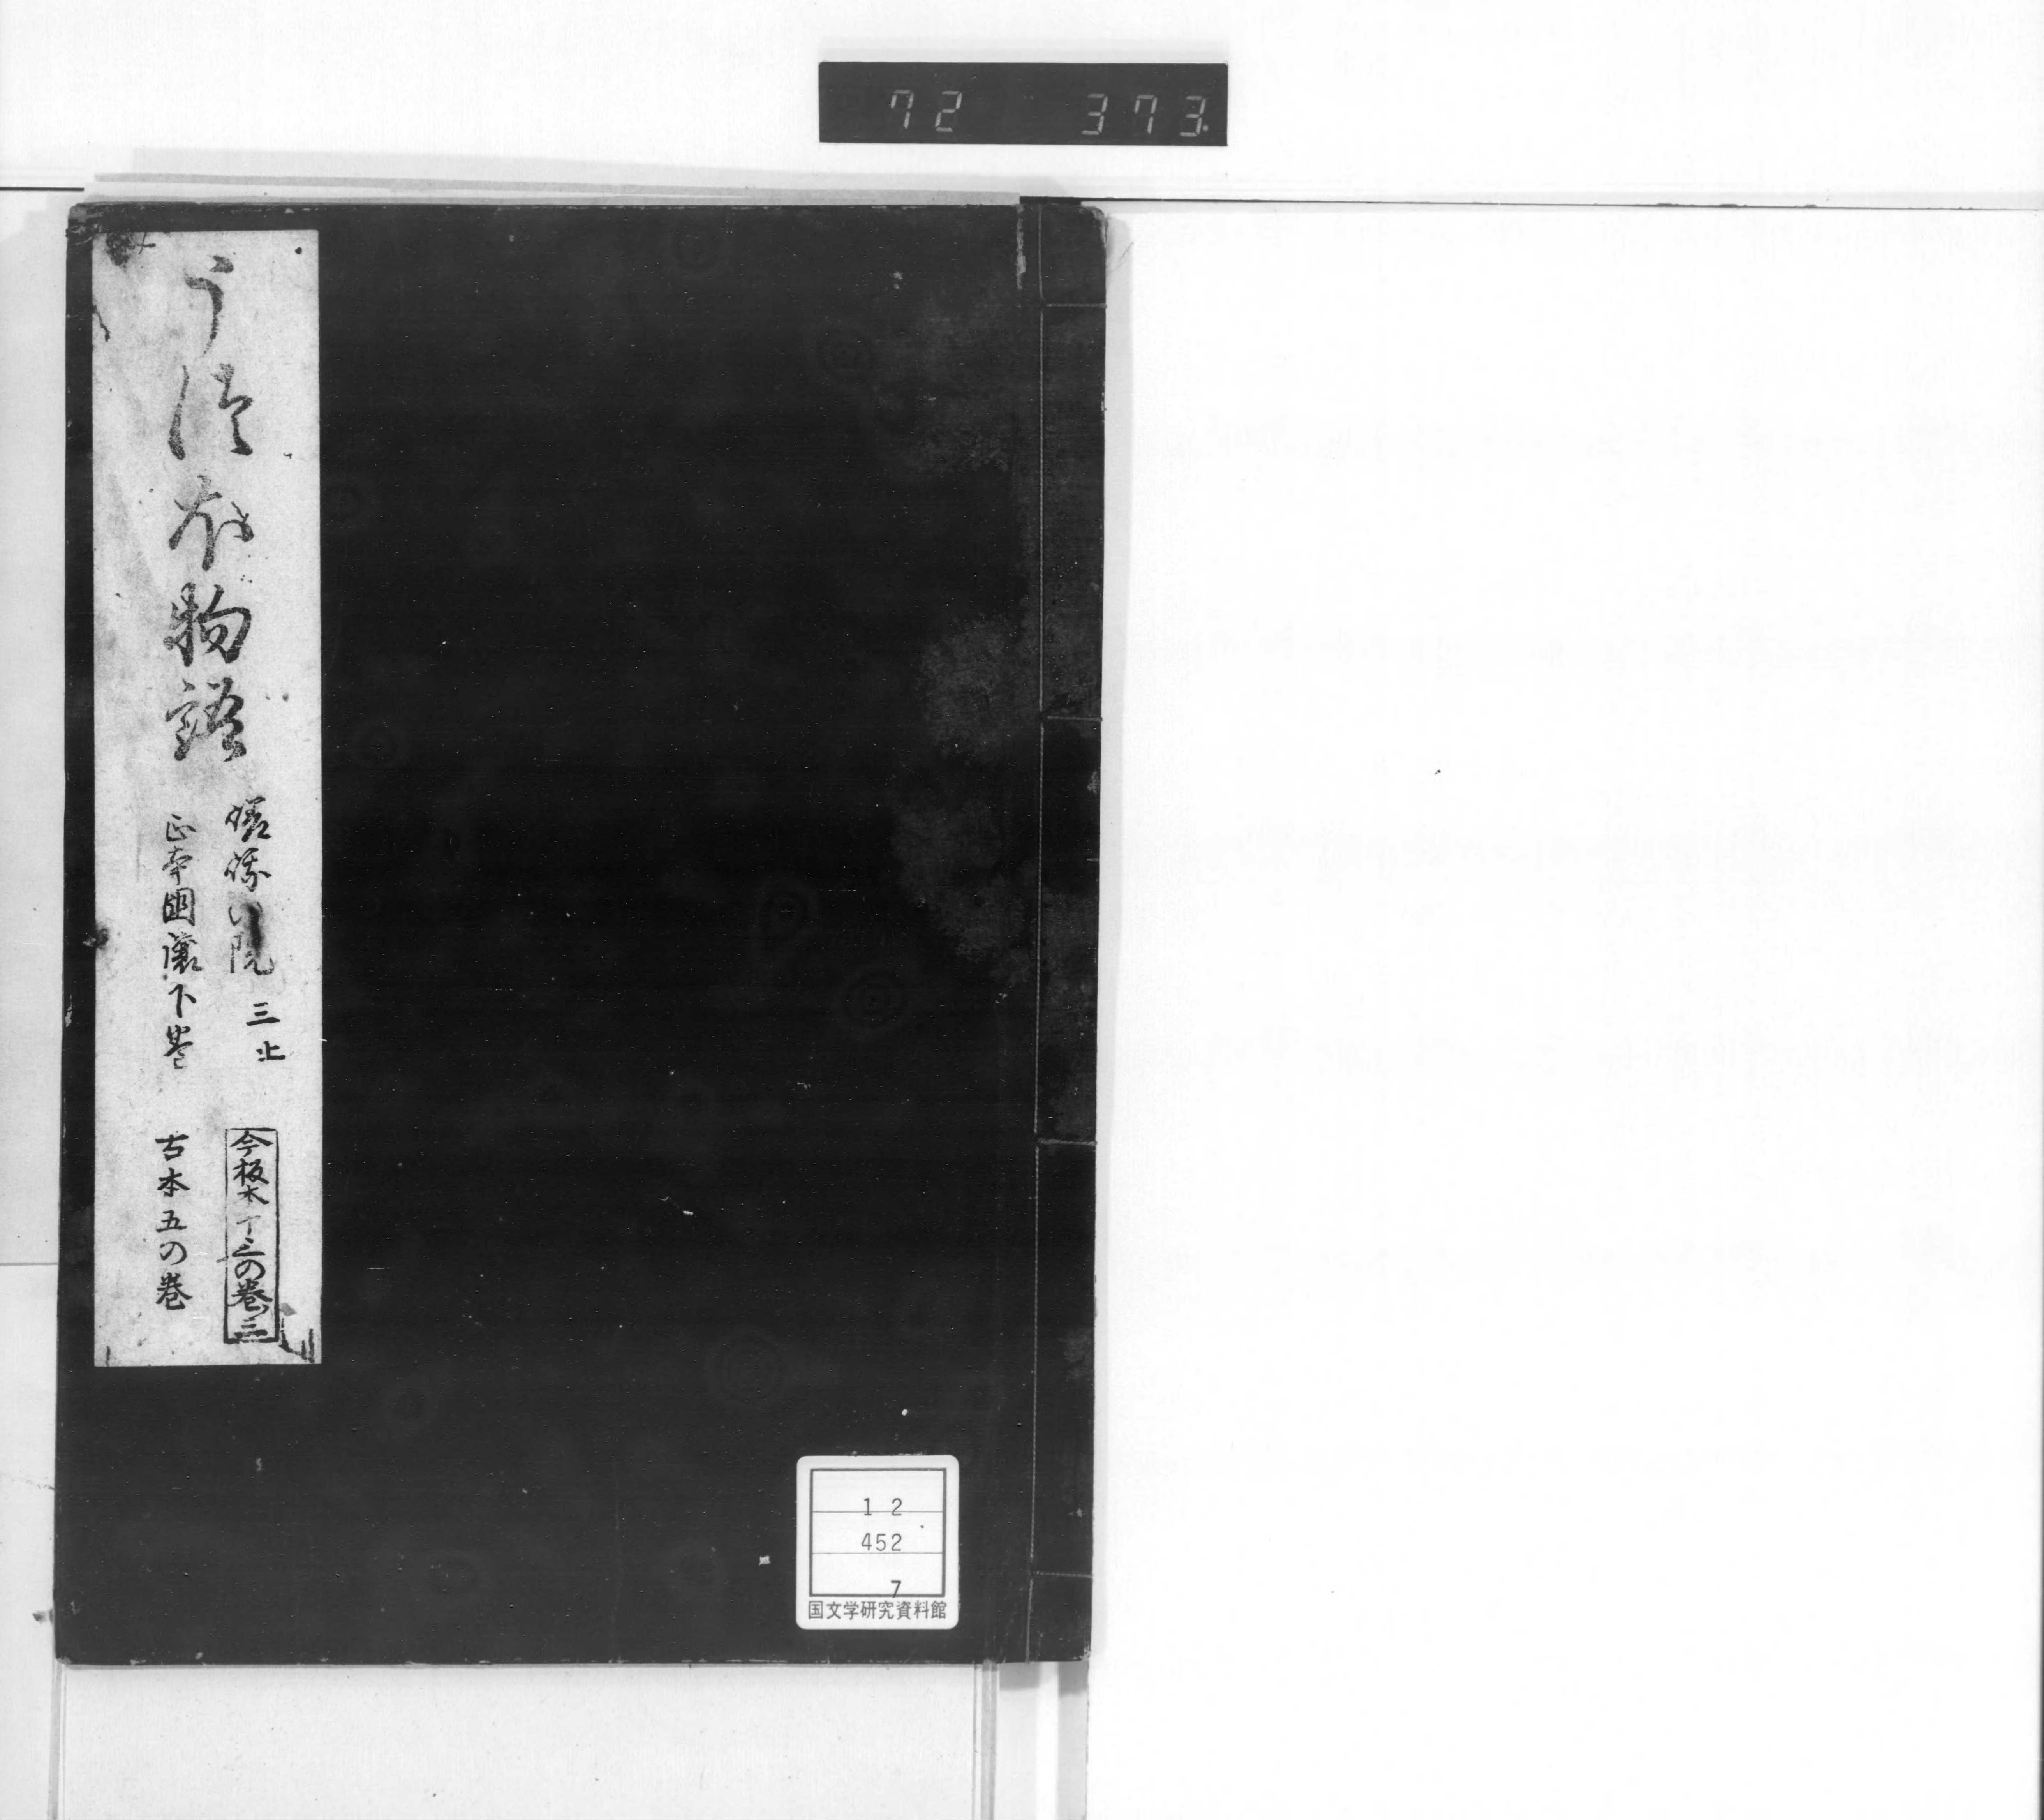 72 373
うつほ物語
嵯峨の院 三止
正本国譲下巻
今板本丁三の巻三
古本五の巻
12
452
7
国文学研究資料館